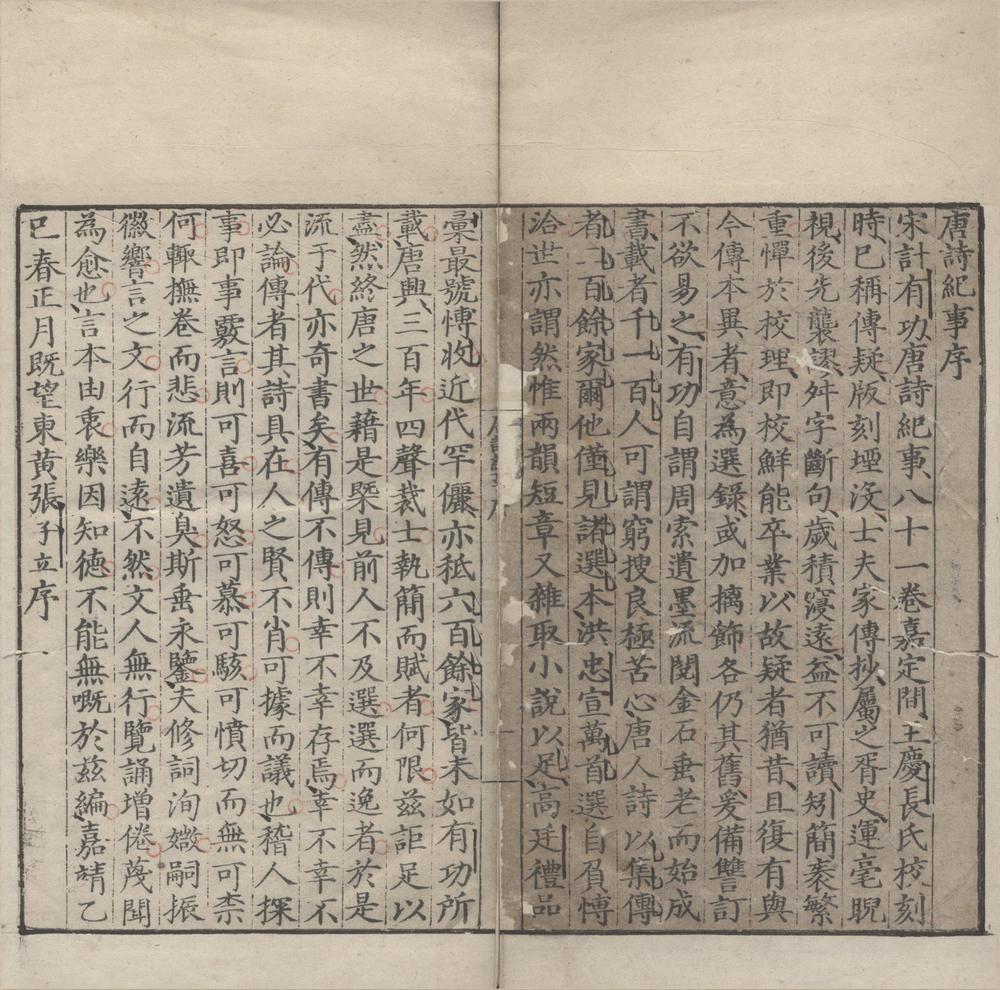 唐詩紀事序
宋計有功唐詩紀事八十一卷嘉定間王慶長氏校刻
時已稱傳疑版刻堙沒士夫家傳抄屬之胥史運毫睨
視後先襲謬舛字斷句歲積寖遠益不可讀矧簡袠繁
重憚於校理即校鮮能卒業以故疑者猶昔且復有與
今傳本異者意為選錄或加摛飾各仍其舊爰備讐訂
不欲易之有功自謂周索遺墨流閱金石垂老而始成
書載者千一百人可謂窮搜良極苦心唐人詩以集傳
者一百餘家爾他僅見諸選本洪忠宣萬首選自負慱
洽世亦謂然惟兩韻短章又雜取小說以足高廷禮品
彙最號慱收近代罕儷亦秪六百餘家皆未如有功所
載唐興三百年四聲裁士執簡而賦者何限茲詎足以
盡然終唐之世藉是槩見前人不及選選而逸者於是
流于代亦奇書矣有傳不傳則幸不幸存焉幸不幸不
必論傳者其詩具在人之賢不肖可據而議也稽人探
事即事覈言則可喜可怒可慕可駭可憤切而無可柰
何輙撫卷而悲流芳遺臭斯垂永鑒夫修詞洵媺嗣振
徽響言之文行而自遠不然文人無行覽誦增倦蔑聞
為愈也言本由衷樂因知德不能無嘅於茲編嘉靖乙
巳春正月既望東黃張子立序